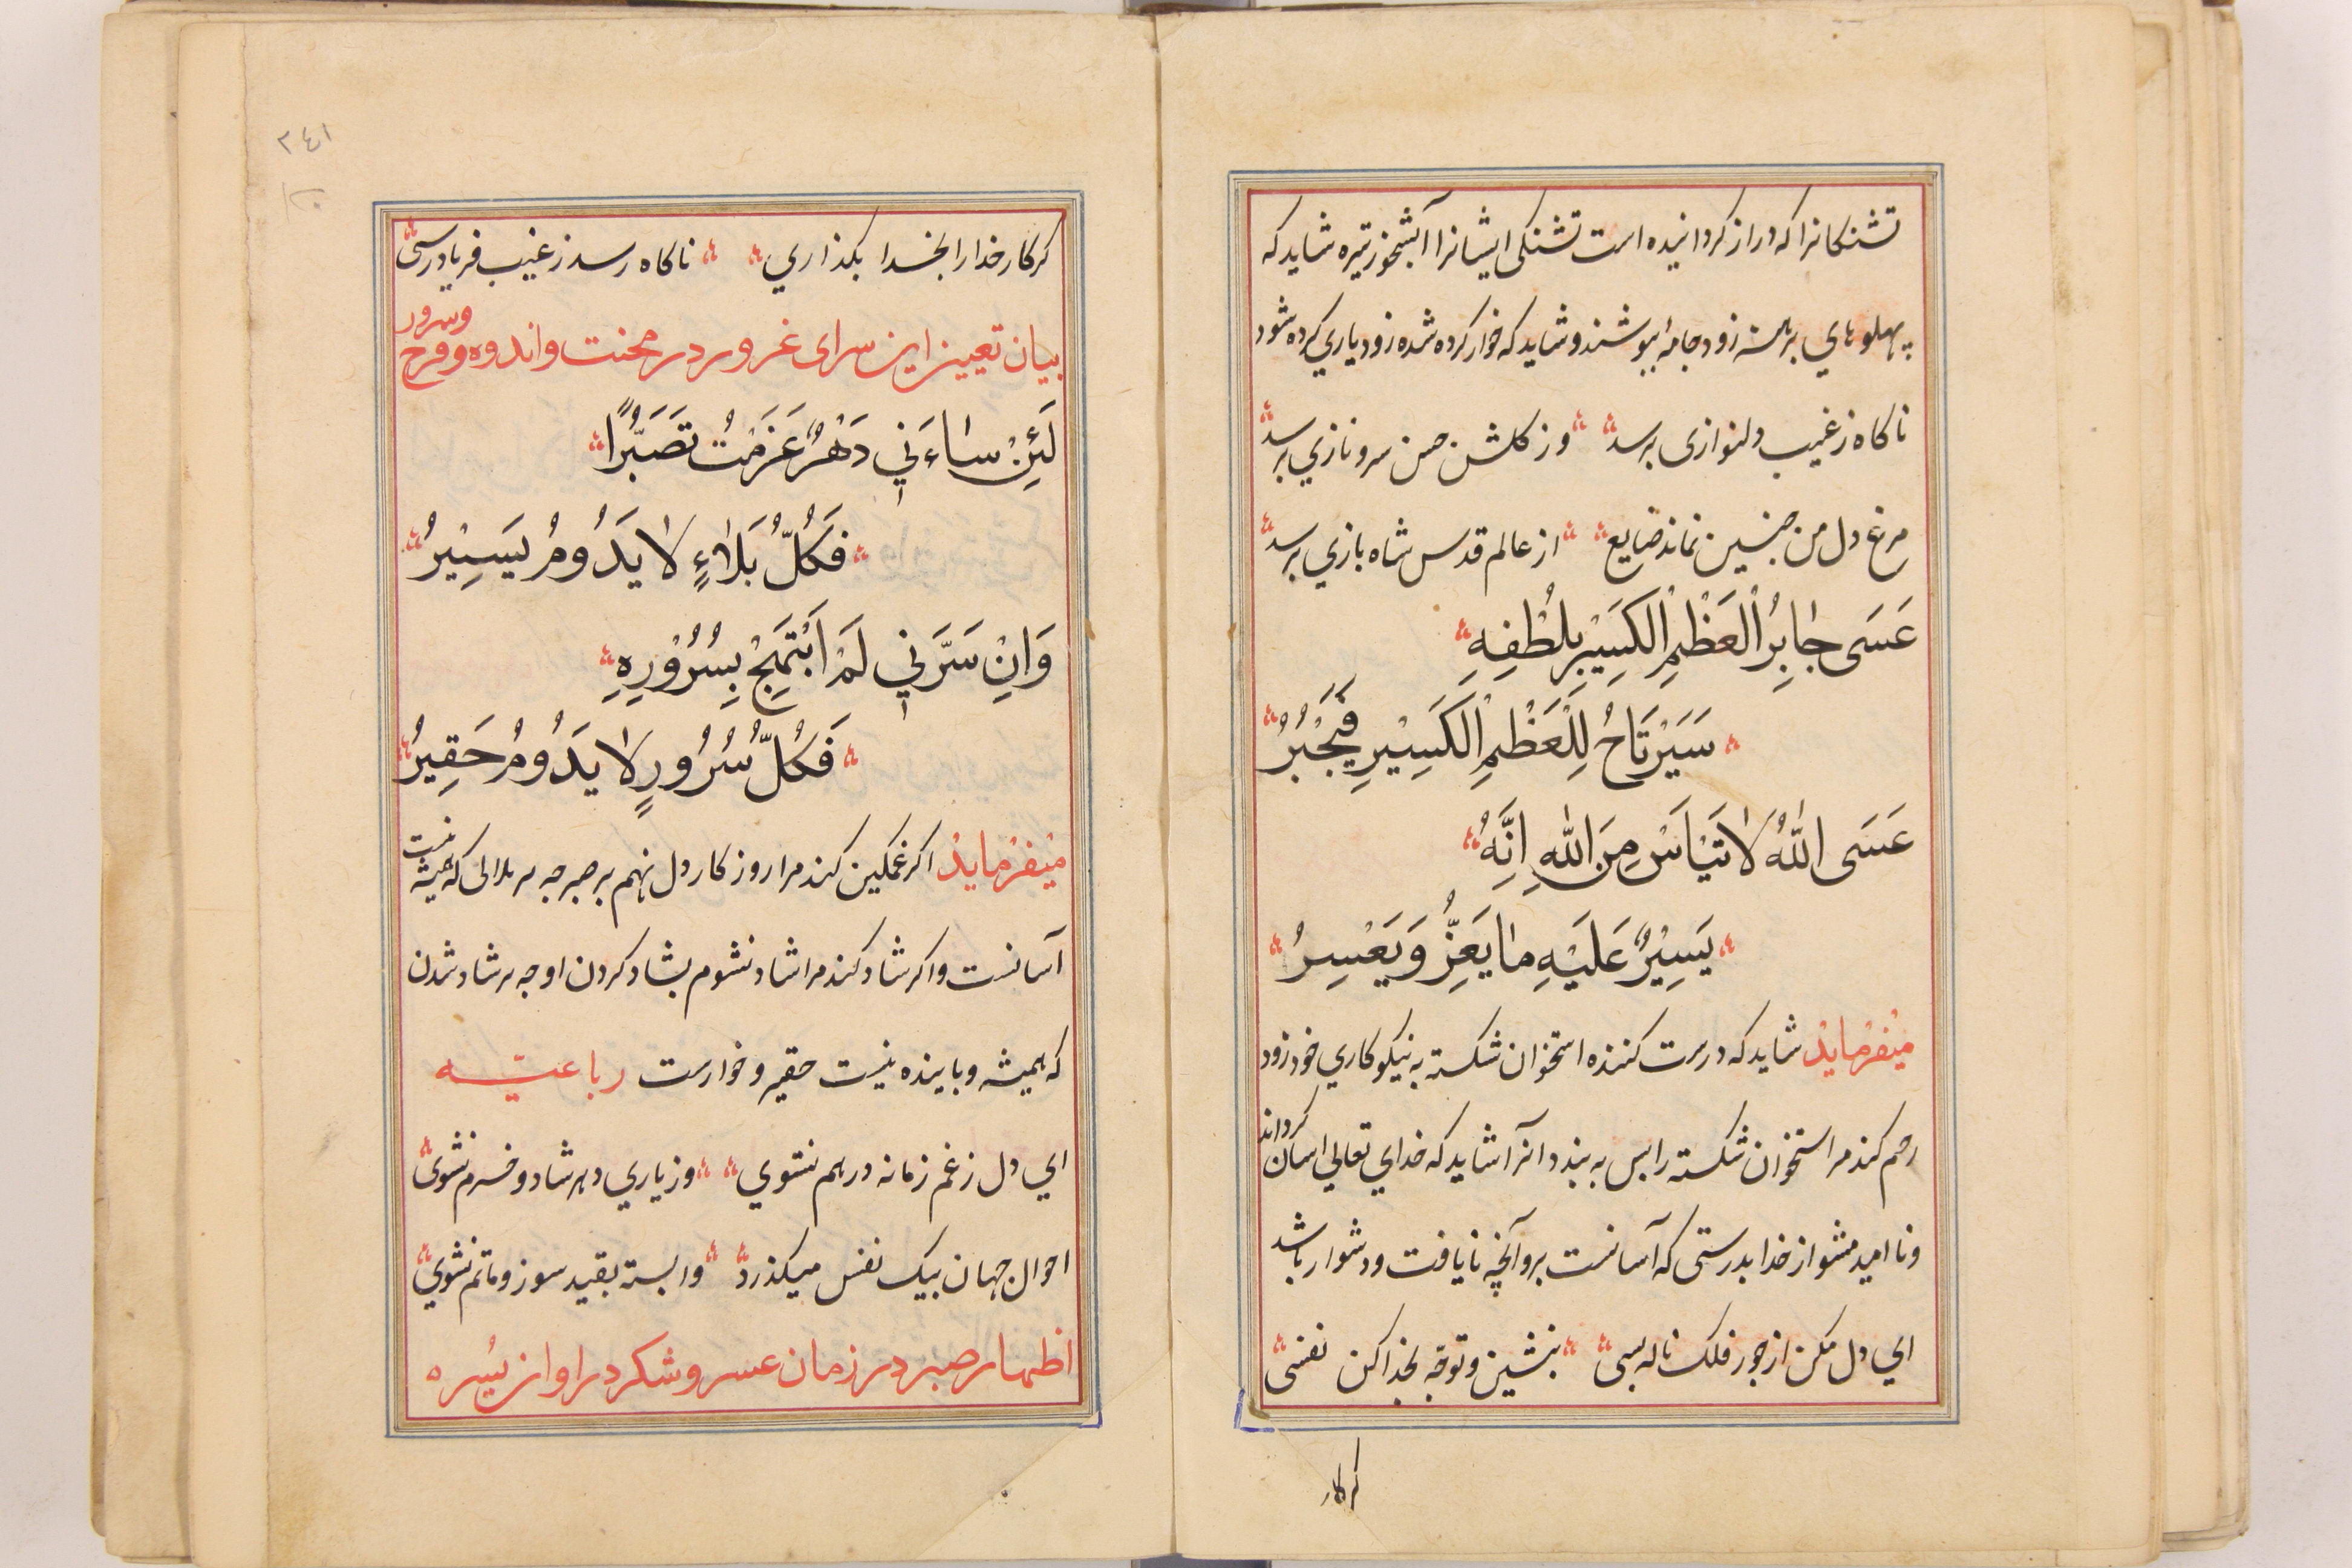 تشنکانرا که دراز کردانیده است تشنکی ایشانرا آبشخور تیره شاید که
پهلوهاي برهنه زود جامه بپوشند و شاید که خوار کرده شده زود یاري کرده شود
ناکاه ز غیب دلنوازی برسد وز کلشن حسن سرو نازي برسد
مرغ دل من چنین نماند ضایع از عالم قدس شاه بازي برسد
عَسَى جٰابِرُ الْعَظْمِ الْكَسِيْرِ بِلُطْفِهِ
سَيَرْتَاحُ لِلْعَظْمِ الْكَسِيْرِ فَيَجْبُرُ
عَسَى اللّٰهُ لٰا تَيْأَسْ مِنَ اللّٰهِ اِنَّهُ
يَسِيْرٌ عَلَيْهِ مٰا يَعَزُّ وَيَعْسِرُ
میفرماید شاید که درست کننده استخوان شکسته به نیکوکاري خود زود
رحم کند مر استخوان شکسته را پس به بندد انرا شاید که خداي تعالي اسان کرداند
و ناامید مشو از خدا بدرستی که آسانست برو آنچه نایافت و دشوار باشد
اي دل مکن از جور فلک ناله بسی بنشین و توجه بخدا کن نفسی
کر کار
۲٤۱
کر کار خدا را بخدا بکذاري ناکاه رسد ز غیب فریادرسی
بیان تعییر این سرای غرور در محنت و اندوه و فرح وسرور
لَئِنْ سٰاءَنِي دَهْرٌ عَزَمْتُ تَصَبُّرًا
فَكُلُّ بَلٰاءٍ لٰا يَدُومُ يَسِيْرُ
وَاِنْ سَرَّنِي لَمْ اَبْتَهِجْ بِسُرُوْرِهِ
فَكُلُّ سُرُورٍ لٰا يَدُومُ حَقِيرُ
میفرماید اکر غمکین کند مرا روزکار دل نهم بر صبر چه هر بلائی که همیشه نیست
آسانست و اکر شاد کند مرا شاد نشوم بشاد کردن او چه هر شاد شدن
که همیشه و پاینده نیست حقیر و خوارست رباعیّه
اي دل ز غم زمانه درهم نشوي وز یاري دهر شاد و خرم نشوی
احوال جهان بیک نفس میکذرد وابسته بقید سوز و ماتم نشوي
اظهار صبر در زمان عسر و شکر در اوان یسره